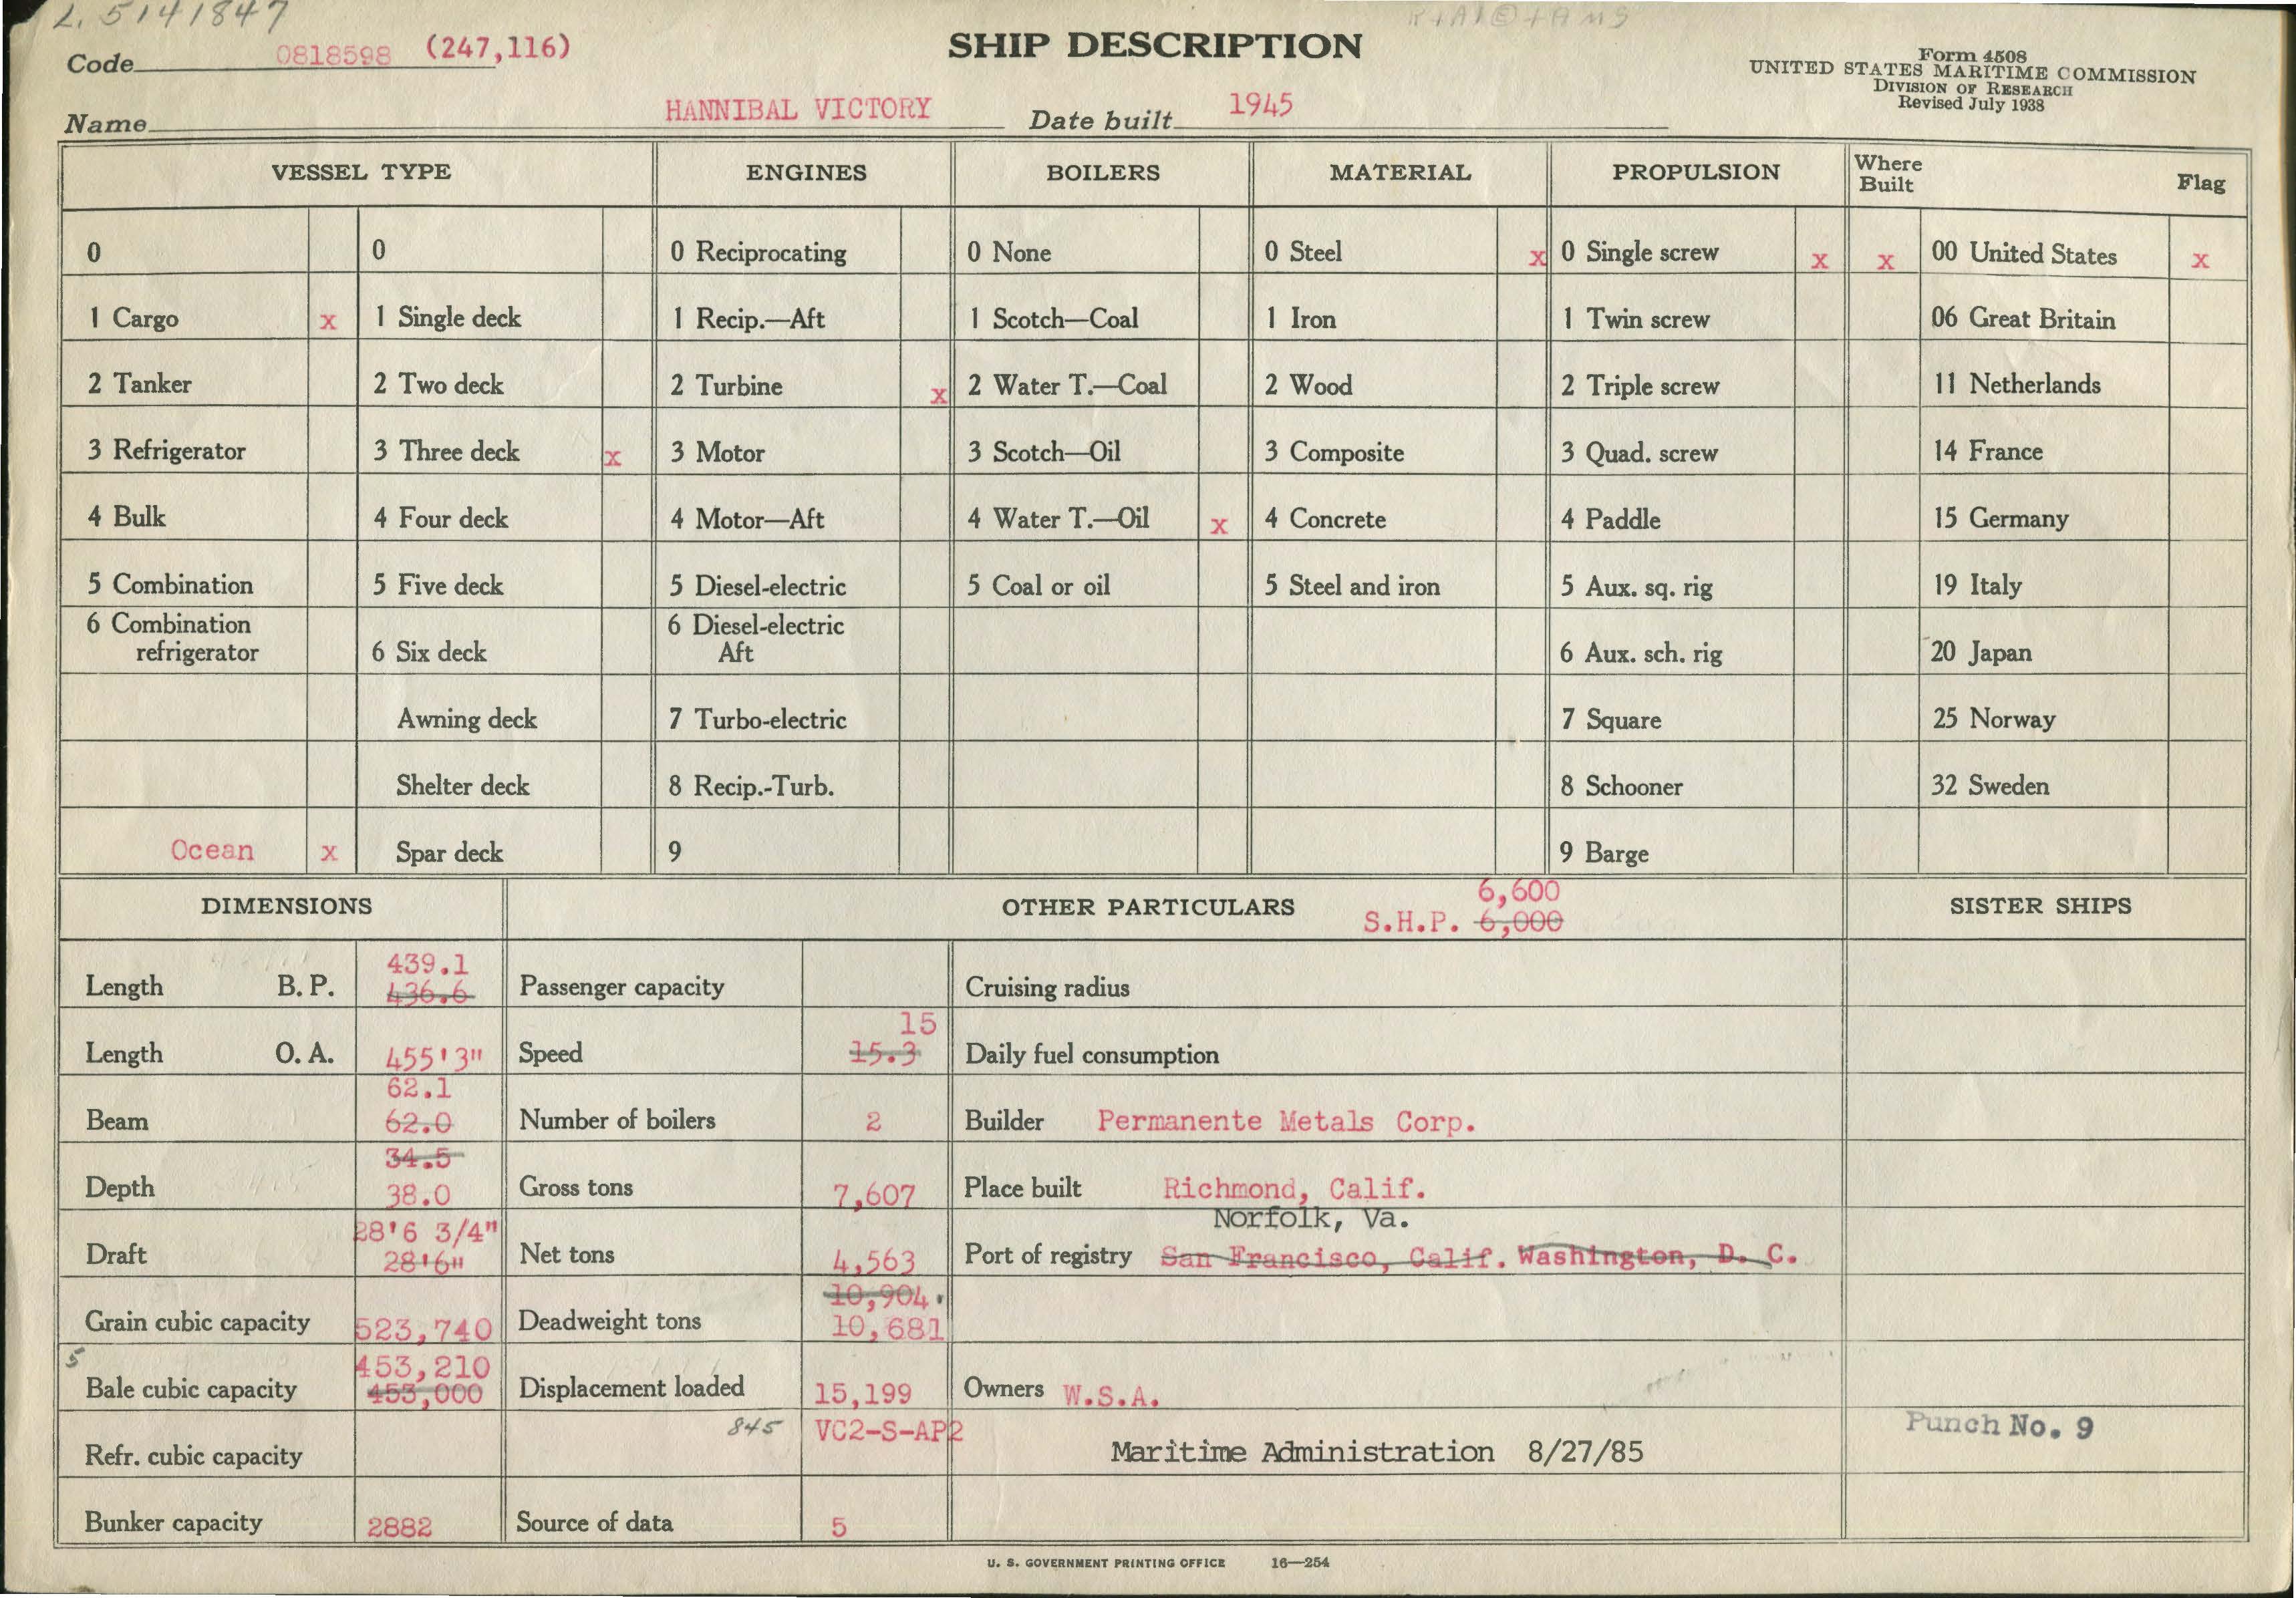 L. 5141847
Code 0818598 (247,116)
SHIP DESCRIPTION
Form 4508
UNITED STATES MARITIME COMMISSION
DIVISION OF RESEARCH
Revised July 1938
Name HANNIBAL VICTORY Date built 1945
VESSEL TYPE ENGINES BOILERS MATERIAL PROPULSION Where Built Flag
0 0 0 Reciprocating 0 None 0 Steel x 0 Single screw x x 00 United States x
1 Cargo x 1 Single deck 1 Recip.—Aft 1 Scotch—Coal 1 Iron 1 Twin screw 06 Great Britain
2 Tanker 2 Two deck 2 Turbine x 2 Water T.—Coal 2 Wood 2 Triple screw 11 Netherlands
3 Refrigerator 3 Three deck x 3 Motor 3 Scotch—Oil 3 Composite 3 Quad. screw 14 France
4 Bulk 4 Four deck 4 Motor—Aft 4 Water T.—Oil x 4 Concrete 4 Paddle 15 Germany
5 Combination 5 Five deck 5 Diesel-electric 5 Coal or oil 5 Steel and iron 5 Aux. sq. rig 19 Italy
6 Combination refrigerator 6 Six deck 6 Diesel-electric Aft 6 Aux. sch. rig 20 Japan
Awning deck 7 Turbo-electric 7 Square 25 Norway
Shelter deck 8 Recip.-Turb. 8 Schooner 32 Sweden
Ocean x Spar deck 9 9 Barge
DIMENSIONS OTHER PARTICULARS S.H.P. 6,600 6,000 SISTER SHIPS
Length B. P. 439.1 436.6 Passenger capacity Cruising radius
Length O. A. 455'3" Speed 15 15.3 Daily fuel consumption
Beam 62.1 62.0 Number of boilers 2 Builder Permanente Metals Corp.
Depth 34.5 38.0 Gross tons 7,607 Place built Richmond, Calif.
Norfolk, Va.
Draft 28'6 3/4" 28'6" Net tons 4,563 Port of registry San Francisco, Calif. Washington, D. C.
Grain cubic capacity 523,740 Deadweight tons 10,904. 10,681
5
Bale cubic capacity 453,210 453,000 Displacement loaded 15,199 Owners W.S.A.
845 VC2-S-AP2 Punch No. 9
Refr. cubic capacity Maritime Administration 8/27/85
Bunker capacity 2882 Source of data 5
U. S. GOVERNMENT PRINTING OFFICE 16—254